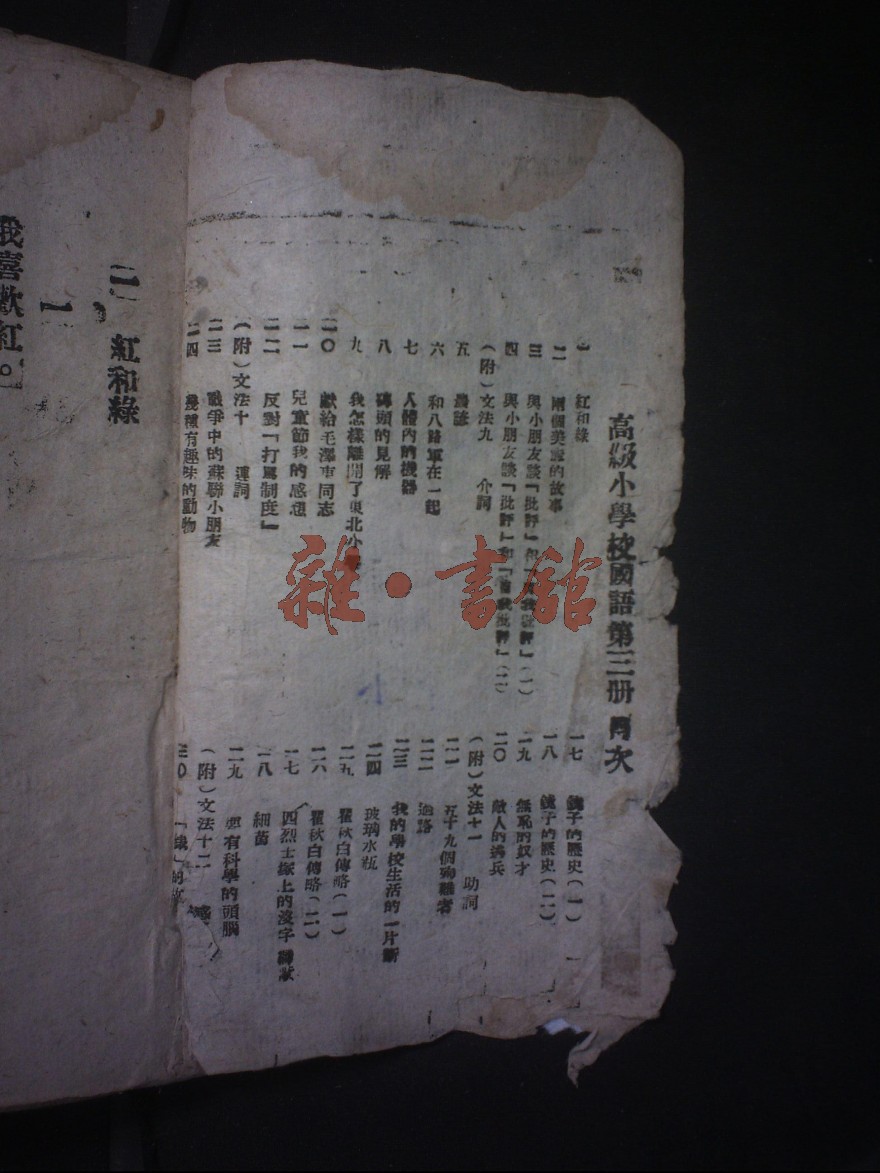 高級小學校國語第三册目次
一 紅和綠
二 兩個美麗的故事
三 與小朋友談「批評」和「自我批評」(一)
四 與小朋友談「批評」和「自我批評」(二)
(附)文法九 介詞
五 農諺
六 和八路軍在一起
七 人體內的機器
八 磚頭的見解
九 我怎樣離開了東北小
一〇 獻給毛澤東同志
一一 兒童節我的感想
一二 反對「打駡制度」
(附)文法十 連詞
一三 戰爭中的蘇聯小朋友
一四 幾種有趣味的動物
一七 鏡子的歷史(一)
一八 鏡子的歷史(二)
一九 無恥的奴才
二〇 敵人的溝兵
(附)文法十一 助詞
二一 五十九個殉難者
二二 過路
二三 我的學校生活的一片斷
二四 玻璃水瓶
二五 瞿秋白傳略(一)
二六 瞿秋白傳略(二)
二七 四烈士塚上的沒字碑歌
二八 細菌
二九 要有科學的頭腦
(附)文法十二
三〇 的
一、紅和綠
一
我喜歡紅。
雜·書館